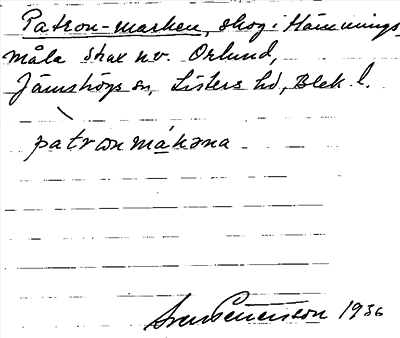 Patron-marken, skog i Hämmings
måla strax n.v. Orlund,
Jämshögs sn, Listers hd, Blek. l.
patron márkəna
Sven Benson 1936